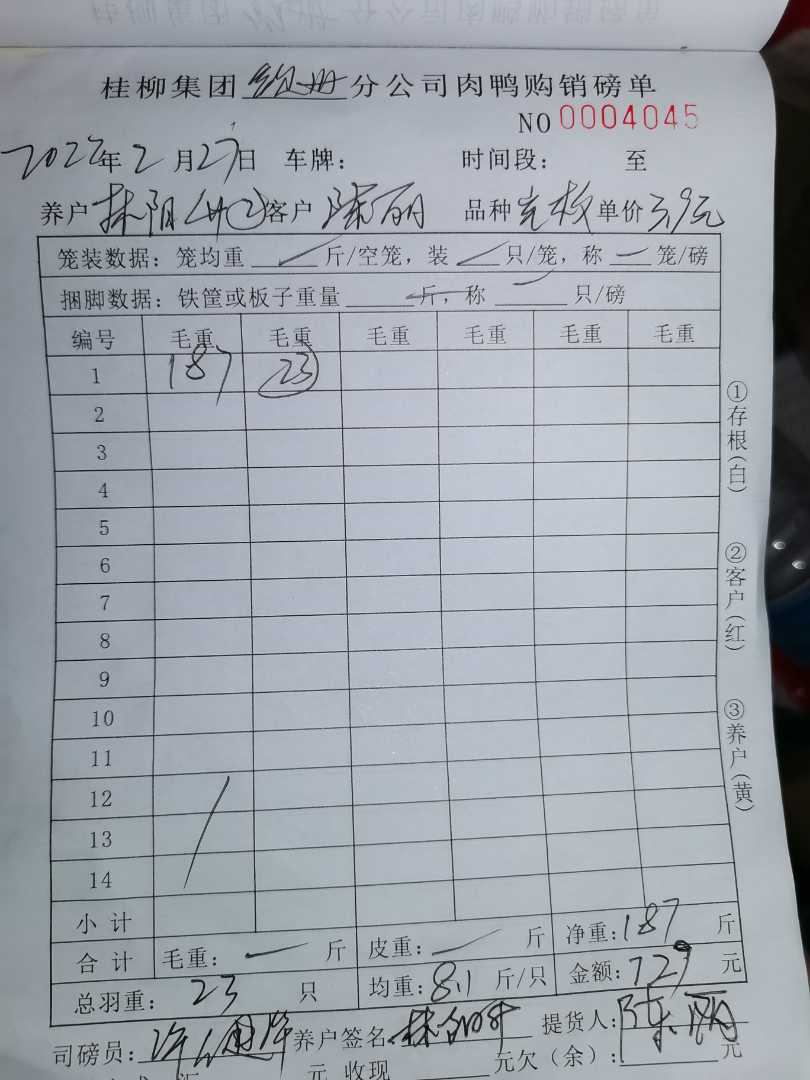 桂柳集团 分公司肉鸭购销磅单
NO 0004045
2022年2月27日 车牌： 时间段： 至
养户 林阳 客户 陈丽 品种 单价 3.9元
笼装数据：笼均重 斤/空笼，装 只/笼，称 笼/磅
捆脚数据：铁筐或板子重量 斤，称 只/磅
编号 毛重 毛重 毛重 毛重 毛重 毛重
1 187 23
2
3
4
5
6
7
8
9
10
11
12
13
14
小计
合计 毛重： 斤 皮重： 斤 净重：187 斤
总羽重：23 只 均重：8.1 斤/只 金额：729 元
司磅员： 养户签名 提货人：陈丽
元 收现 元欠（余）： 元
①存根（白）
②客户（红）
③养户（黄）